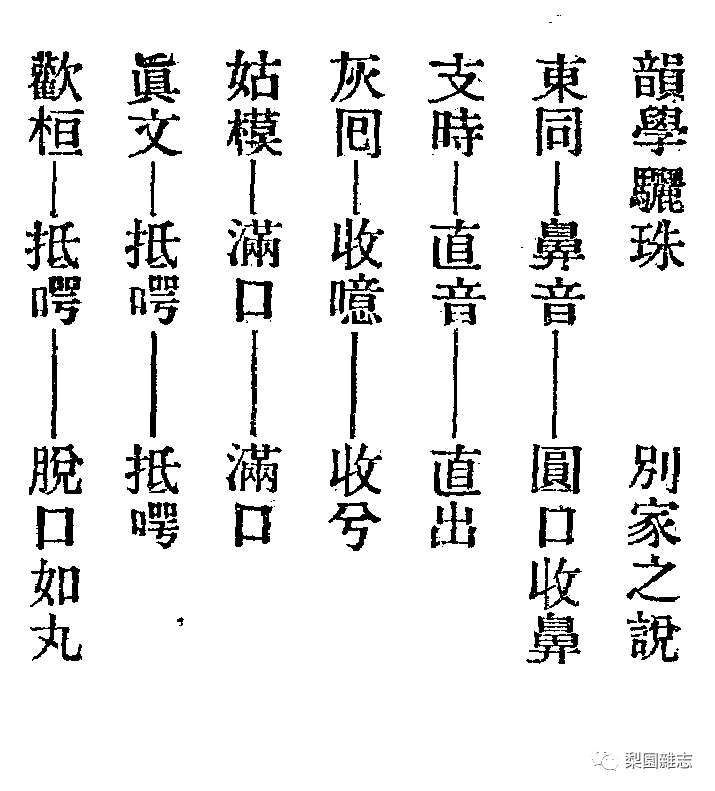 韻學驪珠　別家之說
東同——鼻音——圓口收鼻
支時——直音——直出
灰囘——收噫——收兮
姑模——滿口——滿口
眞文——抵㗁——抵㗁
歡桓——抵㗁——脫口如丸
梨園雜志